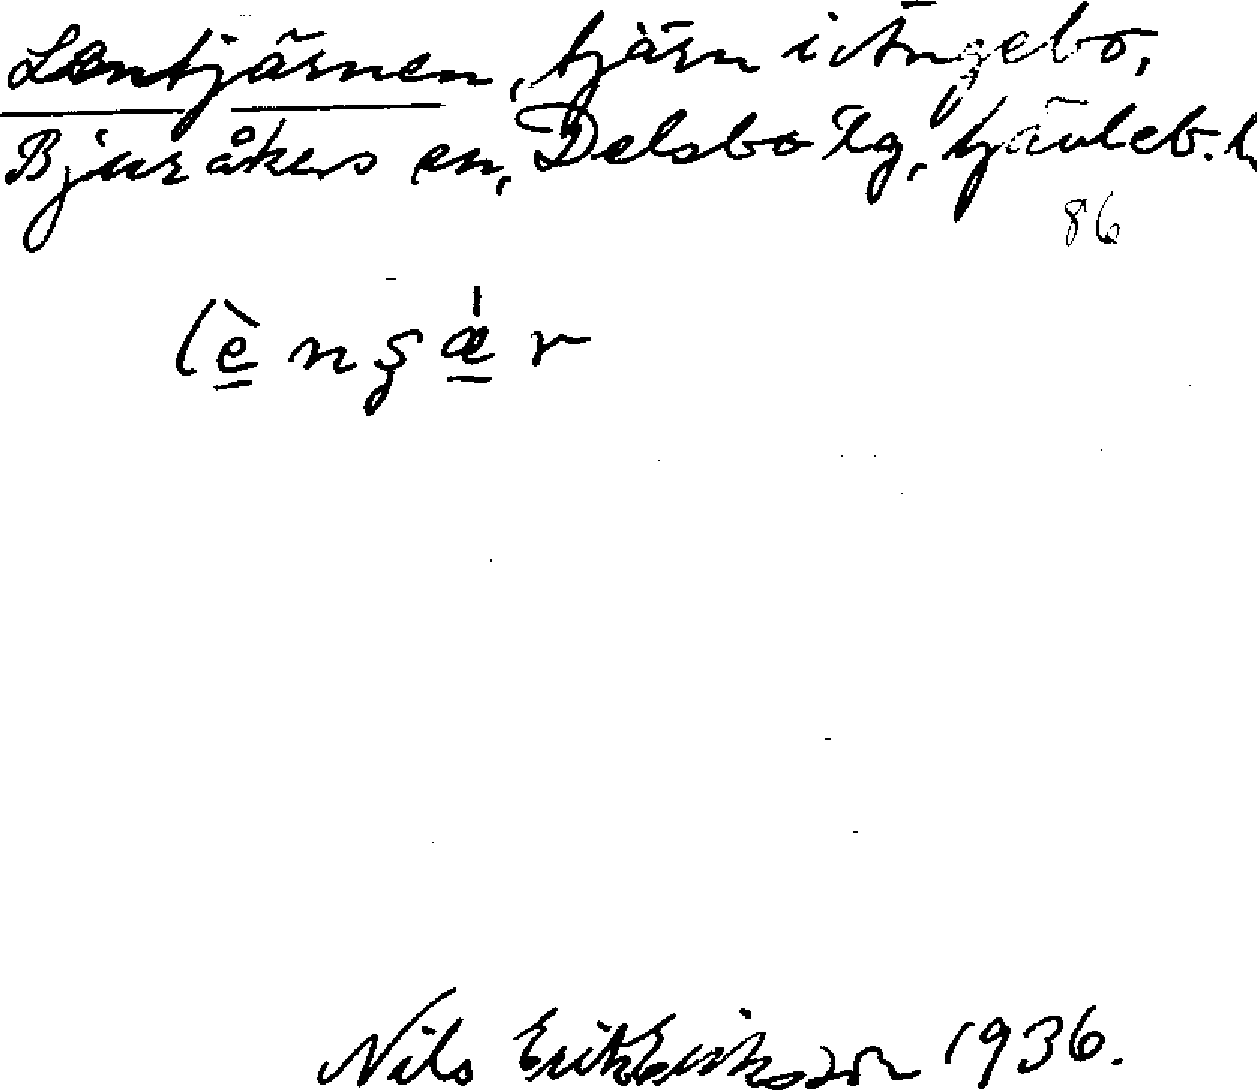 Lentjärnen, tjärn i Ängebo,
Bjuråkers sn, Delsbo tg, Gävleb. l
86
lènʂær
Nils Erik Eriksson 1936.